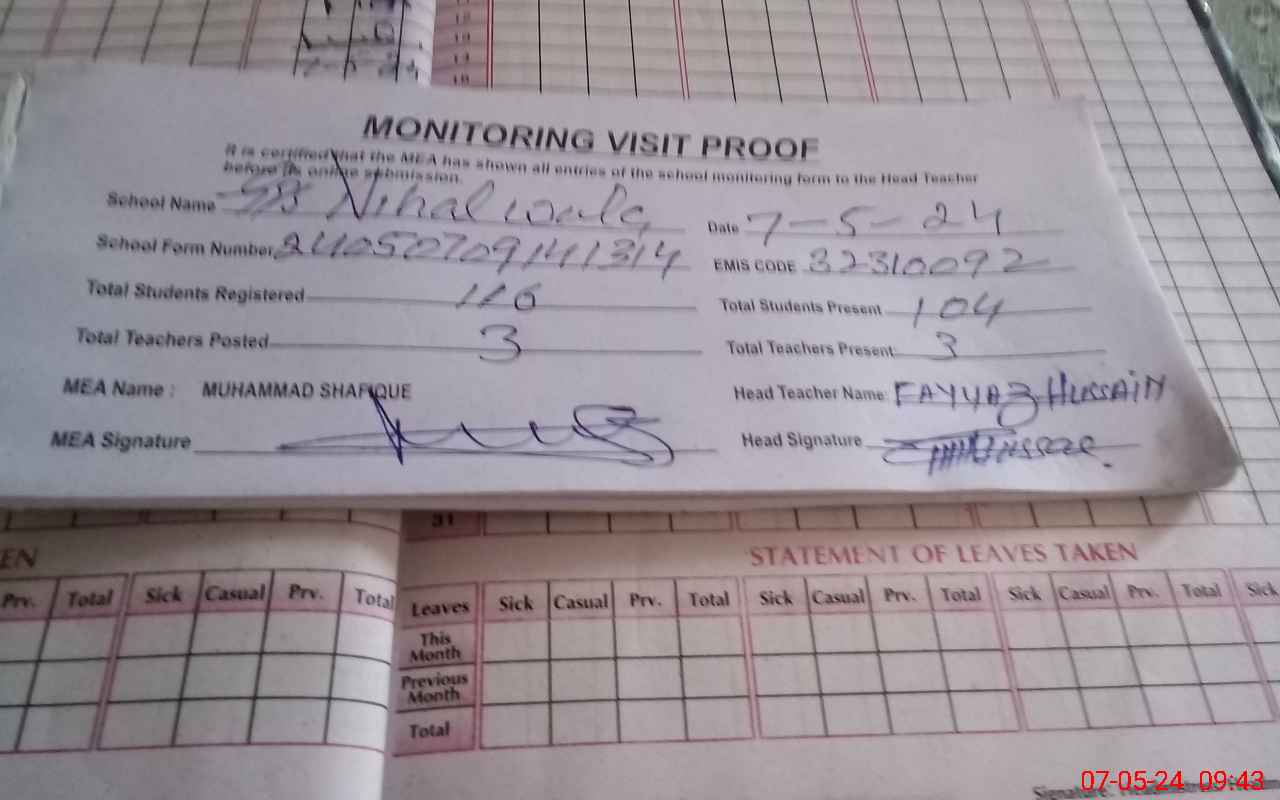 12
13
14
15
MONITORING VISIT PROOF
It is certified that the MEA has shown all entries of the school monitoring form to the Head Teacher
before its online submission.
School Name Nihal wala Date 7-5-24
School Form Number 24050709141314 EMIS CODE 32310092
Total Students Registered 116 Total Students Present 104
Total Teachers Posted 3 Total Teachers Present 3
MEA Name : MUHAMMAD SHAFIQUE Head Teacher Name FAYYAZ HUSSAIN
MEA Signature Head Signature
31
EN STATEMENT OF LEAVES TAKEN
Prv. Total Sick Casual Prv. Total Leaves Sick Casual Prv. Total Sick Casual Prv. Total Sick Casual Prv. Total Sick
This
Month
Previous
Month
Total
Signature
07-05-24 09:43